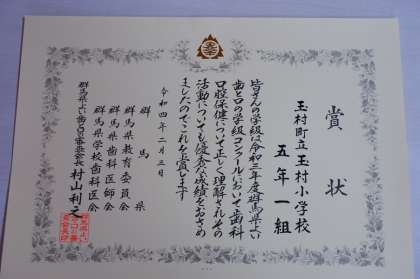 賞状
玉村町立玉村小学校
五年一組
皆さんの学級は令和三年度群馬県よい
歯と口の学級コンクールにおいて歯科
口腔保健について正しく理解されその
活動についても優秀な成績をおさめ
ましたのでこれを賞します
令和四年二月三日
群馬県
群馬県教育委員会
群馬県歯科医師会
群馬県学校歯科医会
群馬県よい歯と口の審査会長 村山利之